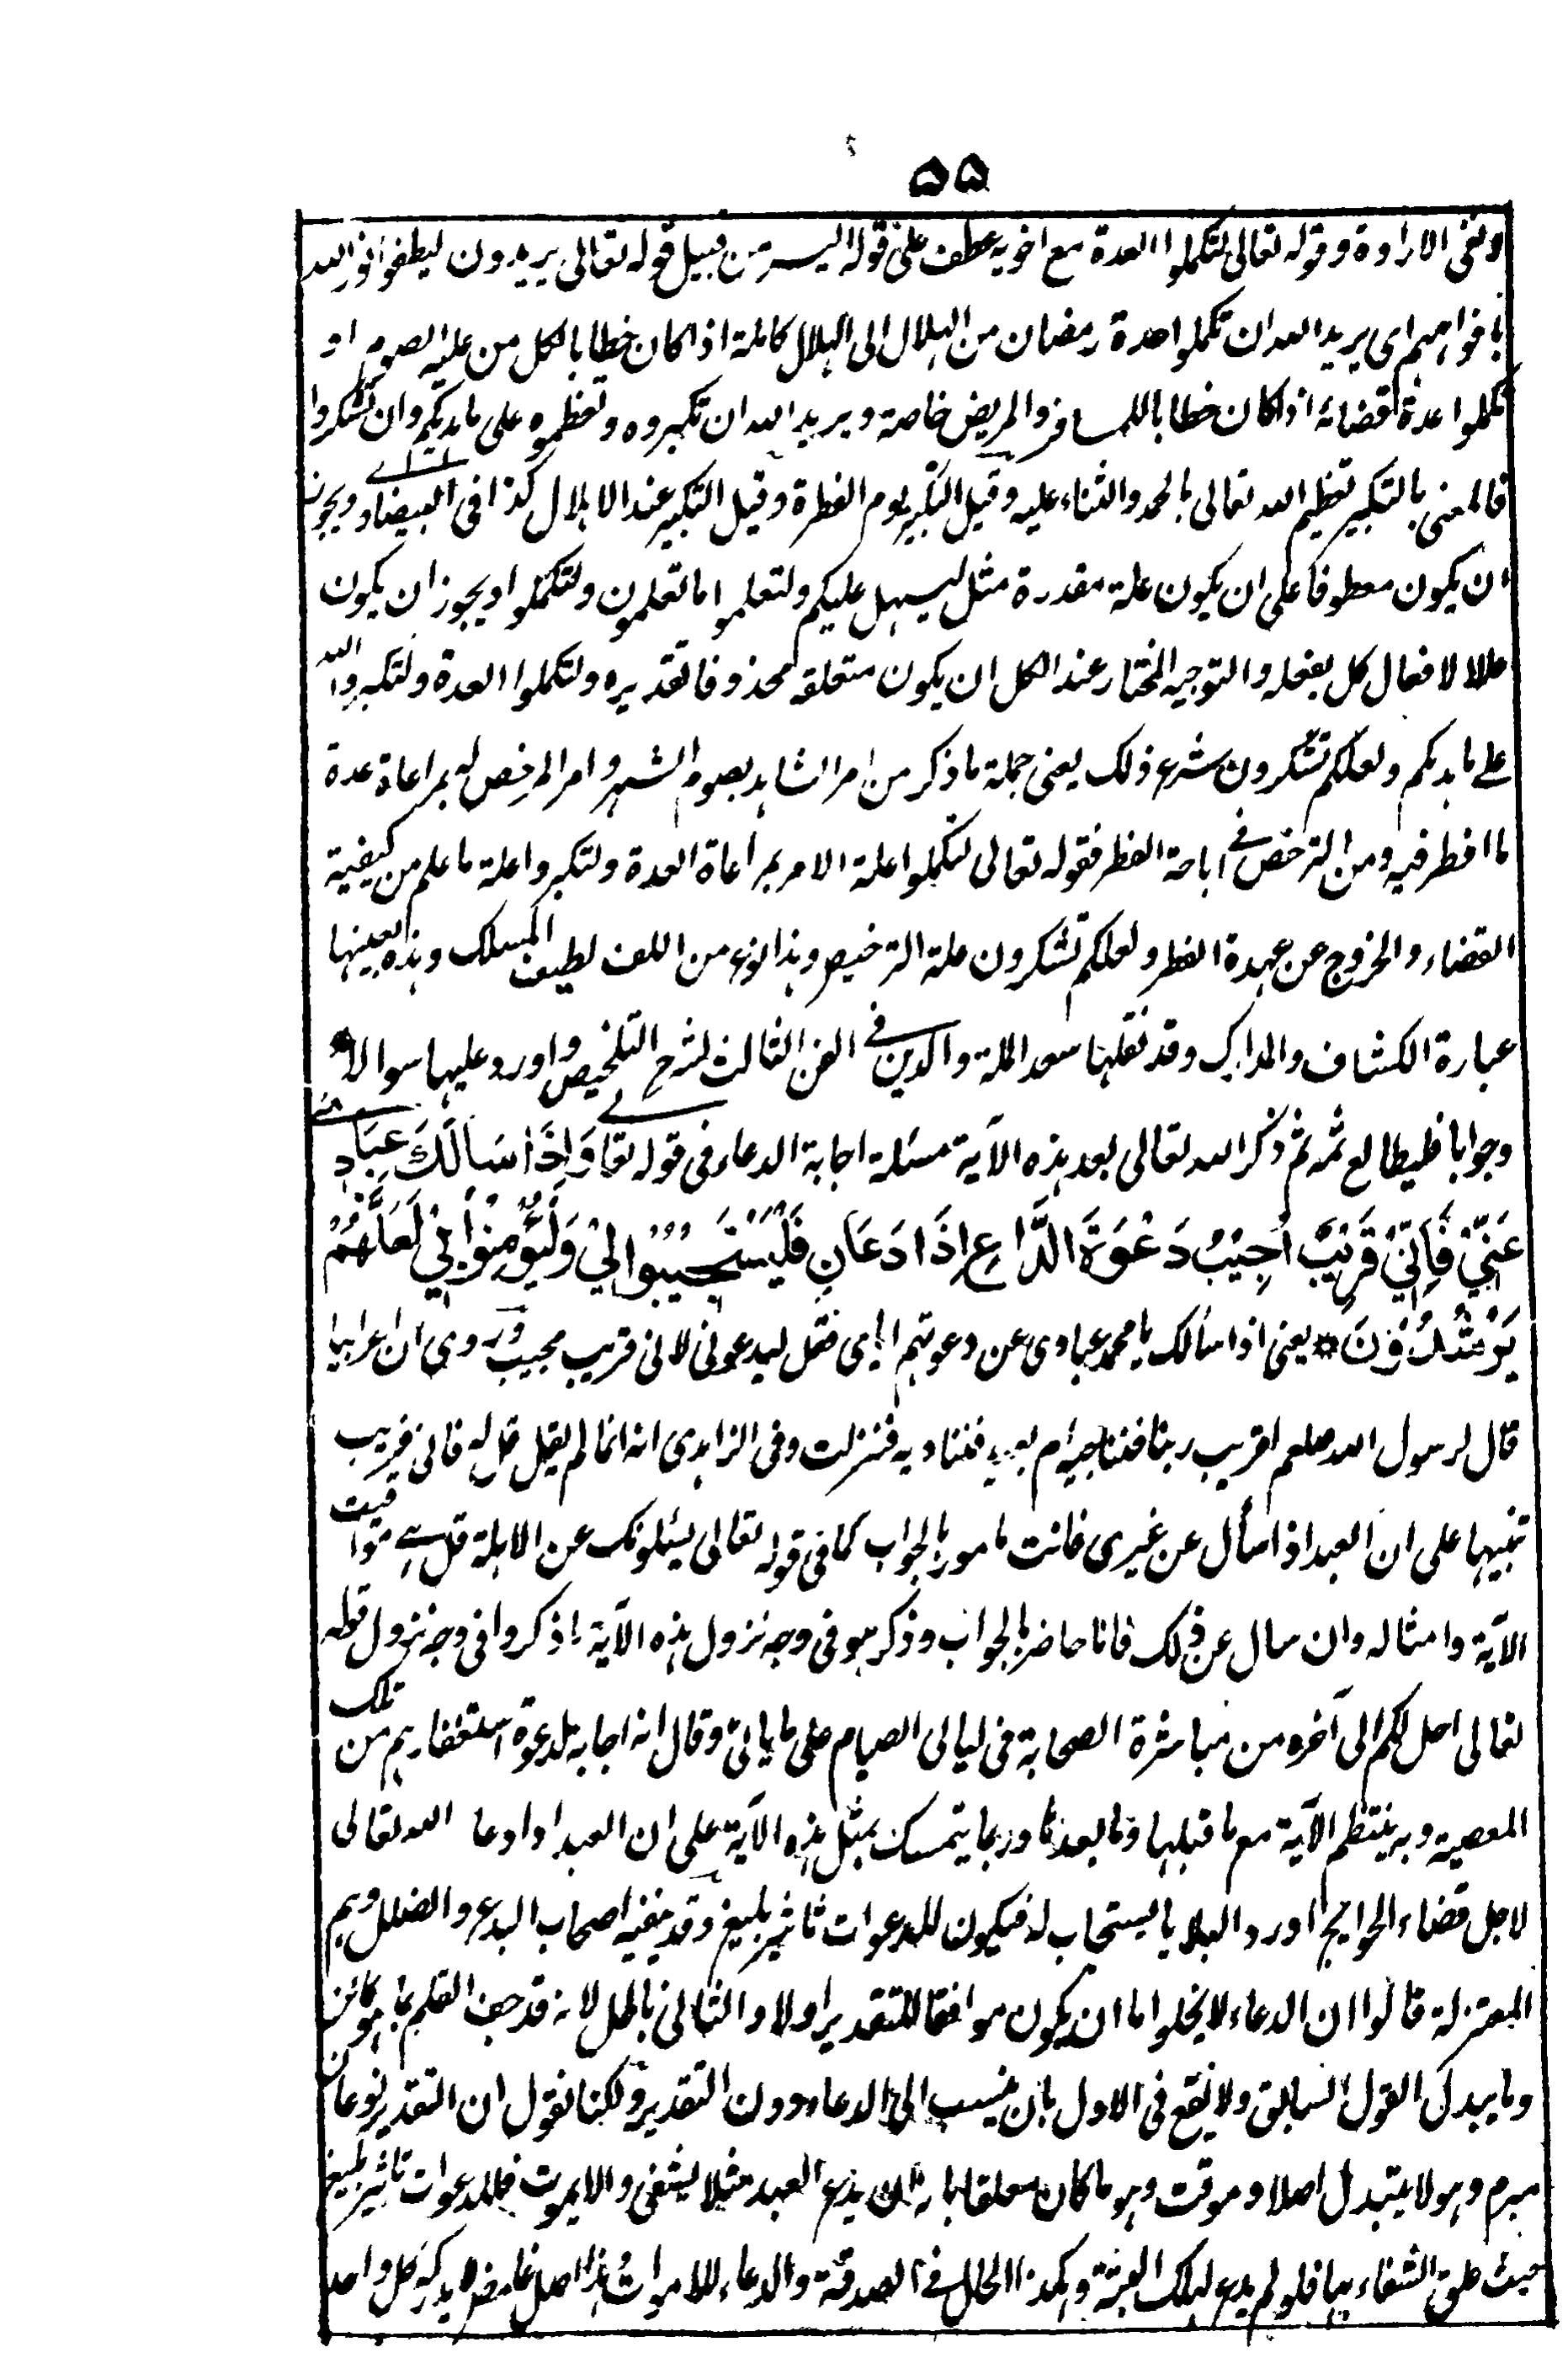 ۵۵
ونفى الارادة وقوله تعالى لتكملوا العدة مع اخويه عطف على قوله اليسر من قبيل قوله تعالى يريدون ليطفوا نور الله
بافواههم اى يريد الله ان تكملوا عدة رمضان من الهلال الى الهلال كاملة اذا كان خطابا لكل من عليه الصوم او
تكملوا عدة قضائه اذا كان خطابا للمسافر والمريض خاصة ويريد الله ان تكبروه وتعظموه على ما هديكم وان تشكروا
فالمعنى بالتكبير تعظيم الله تعالى بالحمد والثناء عليه وقيل التكبير يوم الفطرة وقيل التكبير عند الاهلال كذا فى البيضاوى ويجوز
ان يكون معطوفا على ان يكون علة مقدرة مثل ليسهل عليكم ولتعلموا ما تعلمون ولتكملوا ويجوز ان يكون
عللا لافعال كل بفعله والتوجيه المختار عند الكل ان يكون متعلقه محذوفا تقديره ولتكملوا العدة ولتكبروا الله
على ما هديكم ولعلكم تشكرون شرع ذلك يعنى جملة ما ذكر من امر الشاهد بصوم الشهر وامر المرخص له بمراعاة عدة
ما افطر فيه ومن الترخص فى اباحة الفطر فقوله تعالى لتكملوا علة الامر بمراعاة العدة ولتكبروا علة ما علم من كيفية
القضاء والخروج عن عهدة الفطر ولعلكم تشكرون علة الترخيص وهذا نوع من اللف لطيف المسلك وهذه بعينها
عبارة الكشاف والمدارك وقد نقلها سعد الملة والدين فى الفن الثالث لشرح التلخيص واورد عليها سوالا
وجوابا فليطالع ثمه ثم ذكر الله تعالى بعد هذه الآية مسئلة اجابة الدعاء فى قوله تعالى وَاِذَا سَاَلَكَ عِبَادِى
عَنِّىْ فَاِنِّىْ قَرِيْبٌ اُجِيْبُ دَعْوَةَ الدَّاعِ اِذَا دَعَانِ فَلْيَسْتَجِيْبُوْا لِىْ وَلْيُؤْمِنُوْا بِىْ لَعَلَّهُمْ
يَرْشُدُوْنَ * يعنى اذا سألك يا محمد عبادى عن دعوتهم اياى فقل ليدعونى لانى قريب مجيب وروى ان اعرابيا
قال لرسول الله صلعم اقريب ربنا فنناجيه ام بعيد فنناديه فنزلت وفى الزاهدى انه انما لم يقل قل له فانى قريب
تنبيها على ان العبد اذا سأل عن غيرى فانت مامور بالجواب كما فى قوله تعالى يسئلونك عن الاهلة قل هى مواقيت
الآية وامثاله وان سال عن ذلك فانا حاضر بالجواب وذكر هو فى وجه نزول هذه الآية ما ذكروا فى وجه نزول قوله
تعالى احل لكم الى آخره من مباشرة الصحابة فى ليالى الصيام على ما ياتى وقال انه اجابة لدعوة استغفارهم من تلك
المعصية وبه ينتظم الآية مع ما قبلها وما بعدها وربما يتمسك بمثل هذه الآية على ان العبد اذا دعا الله تعالى
لاجل قضاء الحوايج او رد البلايا يستجاب له فيكون للدعوات تاثير بليغ وقد ينفيه اصحاب البدع والضلال وهم
المعتزلة قالوا ان الدعاء لا يخلوا ما ان يكون موافقا للتقدير او لا والثانى باطل لانه قد جف القلم بما هو كائن
وما يبدل القول السابق ولا نفع فى الاول بان ينسب الى الدعاء دون التقدير ولكنا نقول ان التقدير نوعان
مبرم وهو لا يتبدل اصلا وموقت وهو ما كان معلقا بانه ان يدع العبد مثلا يشفى والا يموت فللدعوات تاثير بليغ
حيث علق الشفاء بها فلو لم يدع لهلك البتة وهكذا الحال فى الصدقة والدعاء للاموات هذا اصل غامض لا يدركه كل واحد